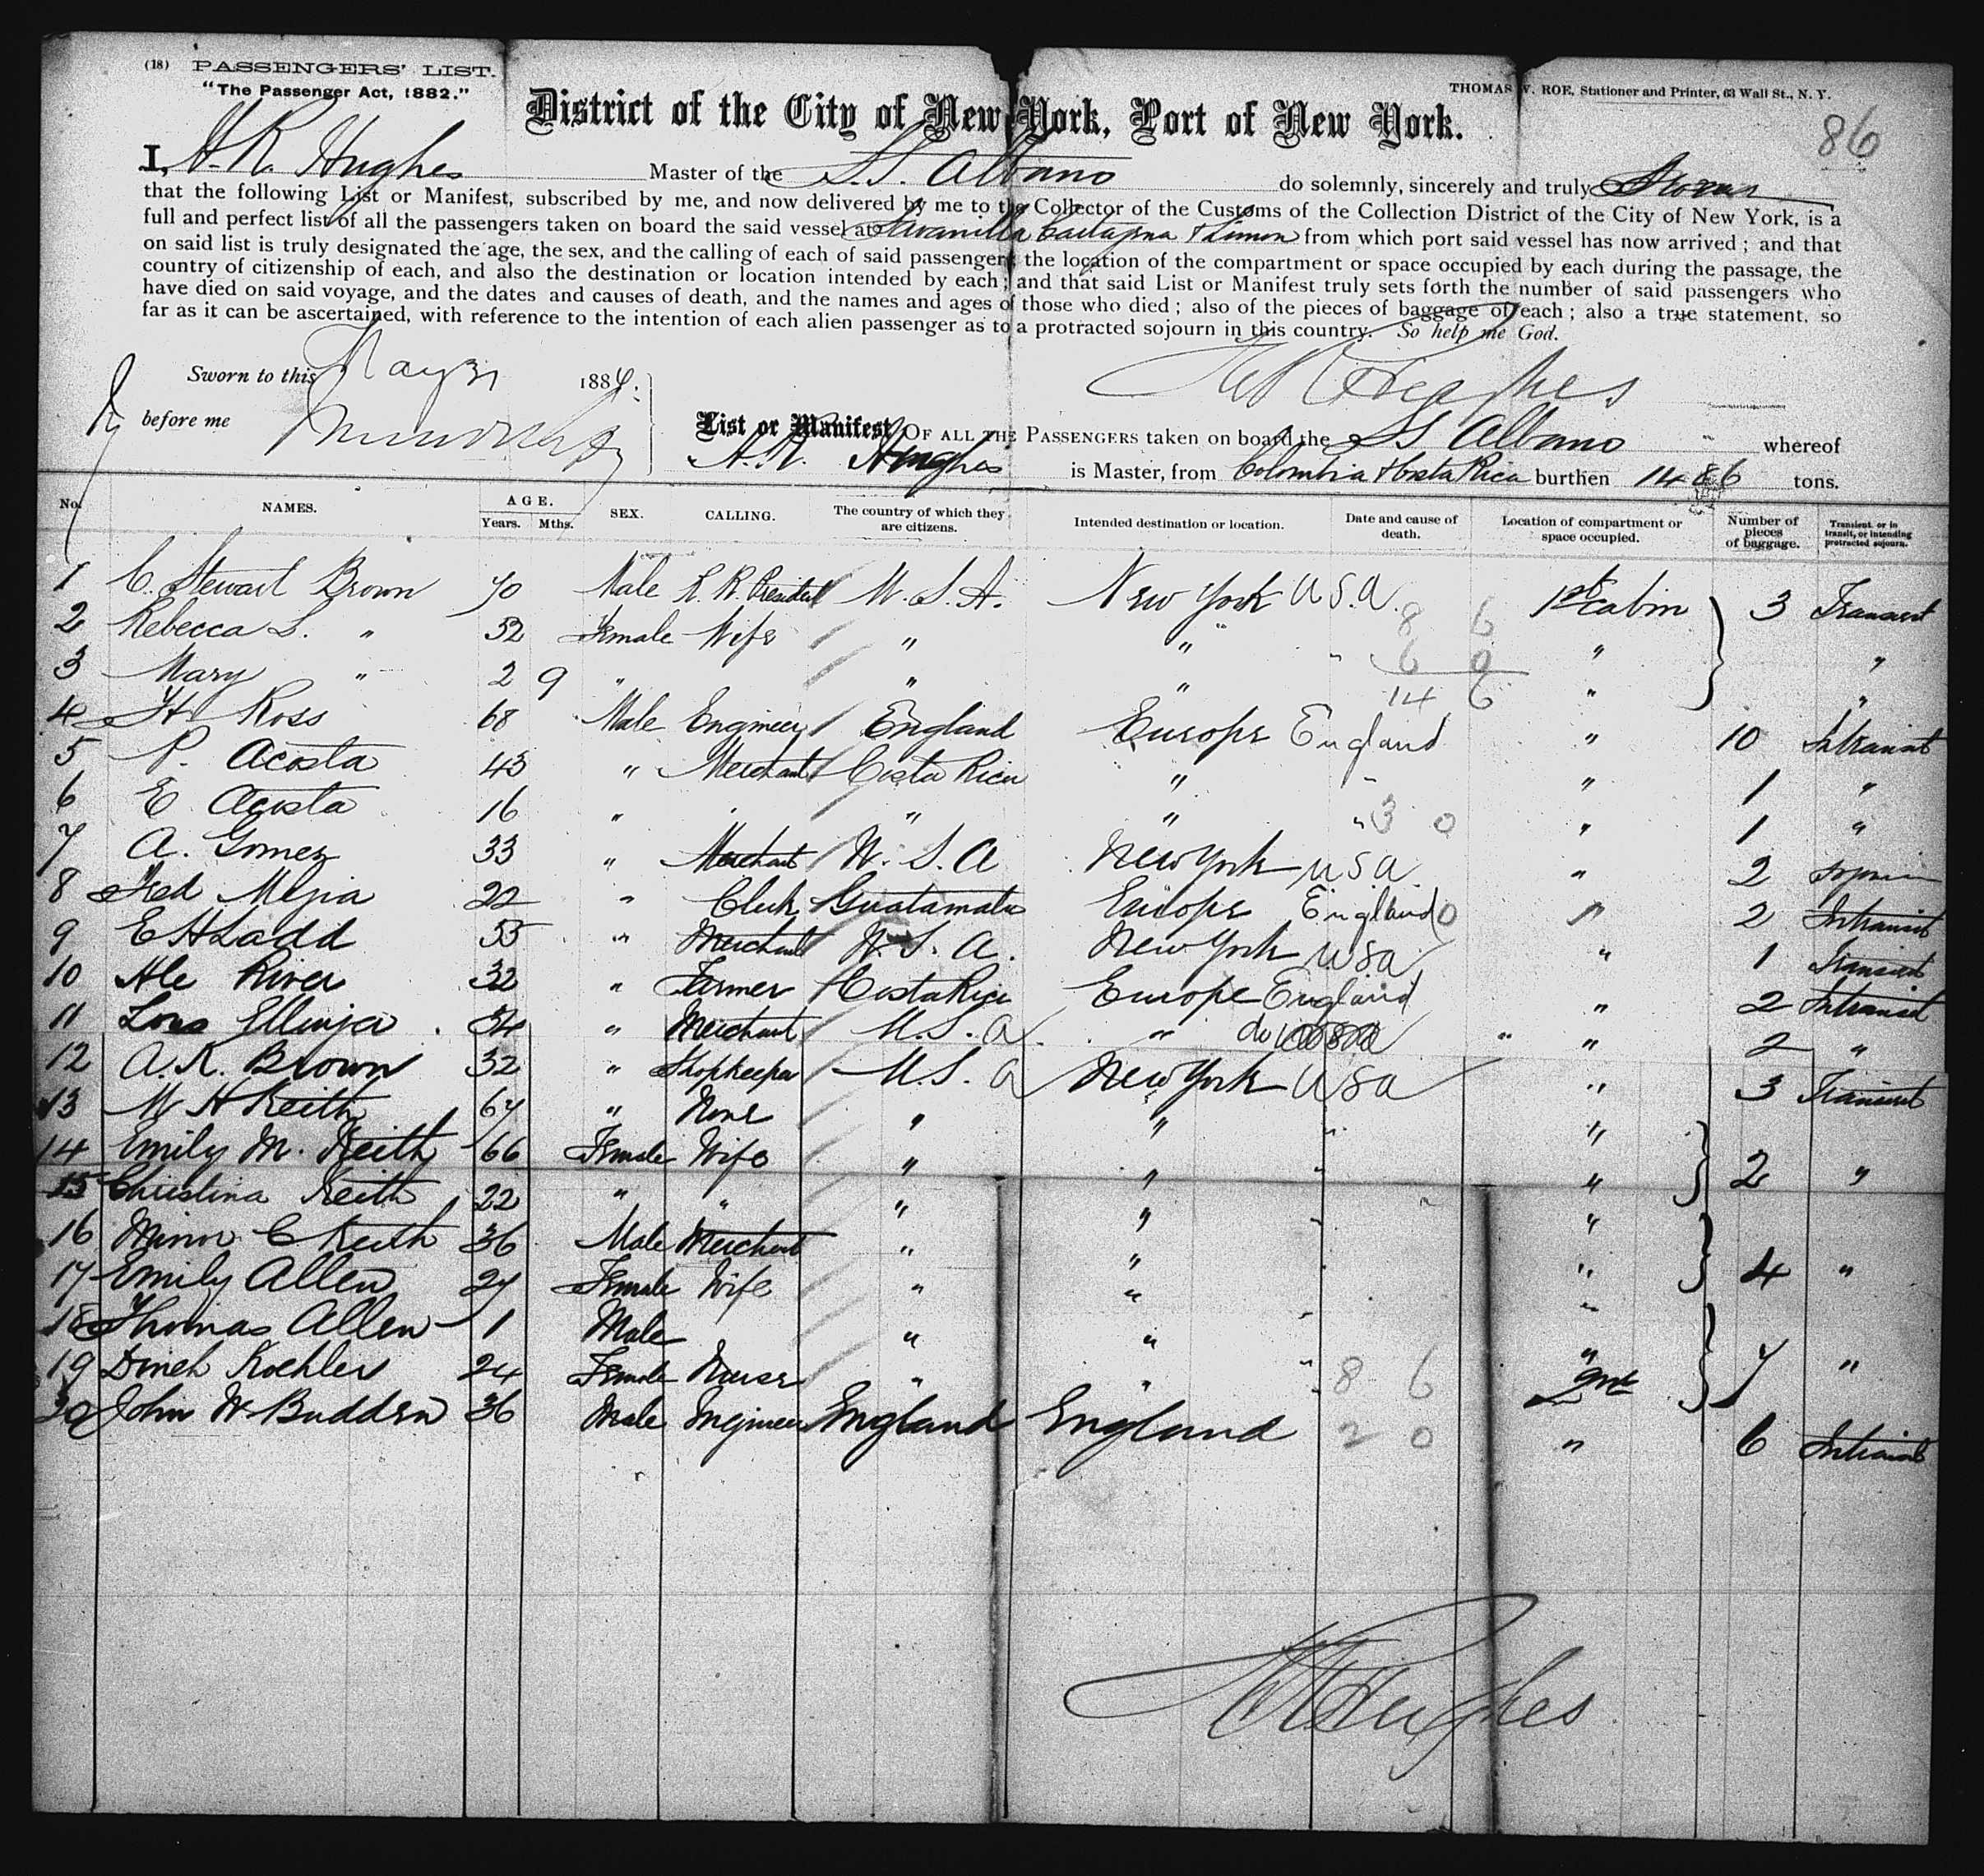 (18) PASSENGERS' LIST.
"The Passenger Act, 1882."
THOMAS W. ROE, Stationer and Printer, 63 Wall St., N. Y.
District of the City of New York, Port of New York.
86
I, H. R. Hughes Master of the S.S. Albano do solemnly, sincerely and truly Swear
that the following List or Manifest, subscribed by me, and now delivered by me to the Collector of the Customs of the Collection District of the City of New York, is a
full and perfect list of all the passengers taken on board the said vessel at Savanilla Cartagena & Limon from which port said vessel has now arrived; and that
on said list is truly designated the age, the sex, and the calling of each of said passengers, the location of the compartment or space occupied by each during the passage, the
country of citizenship of each, and also the destination or location intended by each; and that said List or Manifest truly sets forth the number of said passengers who
have died on said voyage, and the dates and causes of death, and the names and ages of those who died; also of the pieces of baggage of each; also a true statement, so
far as it can be ascertained, with reference to the intention of each alien passenger as to a protracted sojourn in this country. So help me God.
Sworn to this May 31 1884.
H R Hughes
before me
List or Manifest OF ALL THE PASSENGERS taken on board the SS Albano whereof
H. R. Hughes is Master, from Colombia & Costa Rica burthen 1486 tons.
No. NAMES. AGE. Years. Mths. SEX. CALLING. The country of which they are citizens. Intended destination or location. Date and cause of death. Location of compartment or space occupied. Number of pieces of baggage. Transient, or in transit, or intending protracted sojourn.
1 C. Stewart Brown 70 Male R. R. President U. S. A. New York USA. 1st Cabin 3 Transient
2 Rebecca L. " 52 Female Wife " " " 8 6 " "
3 Mary " 2 9 " " " 6 0 " "
14 6
4 H Ross 68 Male Engineer England Europe England " 10 Intransit
5 P. Acosta 43 " Merchant Costa Rica " " " 1 "
6 E. Acosta 16 " " " " 3 0 " 1 "
7 A. Gomez 33 " Merchant U. S. A New York USA " 2
8 Fed Mejia 22 " Clerk Guatamala Europe England 0 " 2 Intransit
9 E H Ladd 55 " Merchant U. S. A. New York USA " 1 Transient
10 Ale River 32 " Farmer Costa Rica Europe England " 2 Intransit
11 Ellinger 34 " Merchant U. S. A. " do " " 2 "
12 A. R. Brown 32 " Shopkeeper U. S. A New York USA " 3 Transient
13 M H Keith 67 " None " " " "
14 Emily M. Keith 66 Female Wife " " " " 2 "
15 Christina Keith 22 " " " " " "
16 Minor C Keith 36 Male Merchant " " " 4 "
17 Emily Allen 27 Female Wife " " " "
18 Thomas Allen 1 Male " " " "
19 Koehler 24 Female Nurse " " " 8 6 2nd 7 "
20 John W Budden 36 Male Engineer England England 2 0 " 6 Intransit
H R Hughes